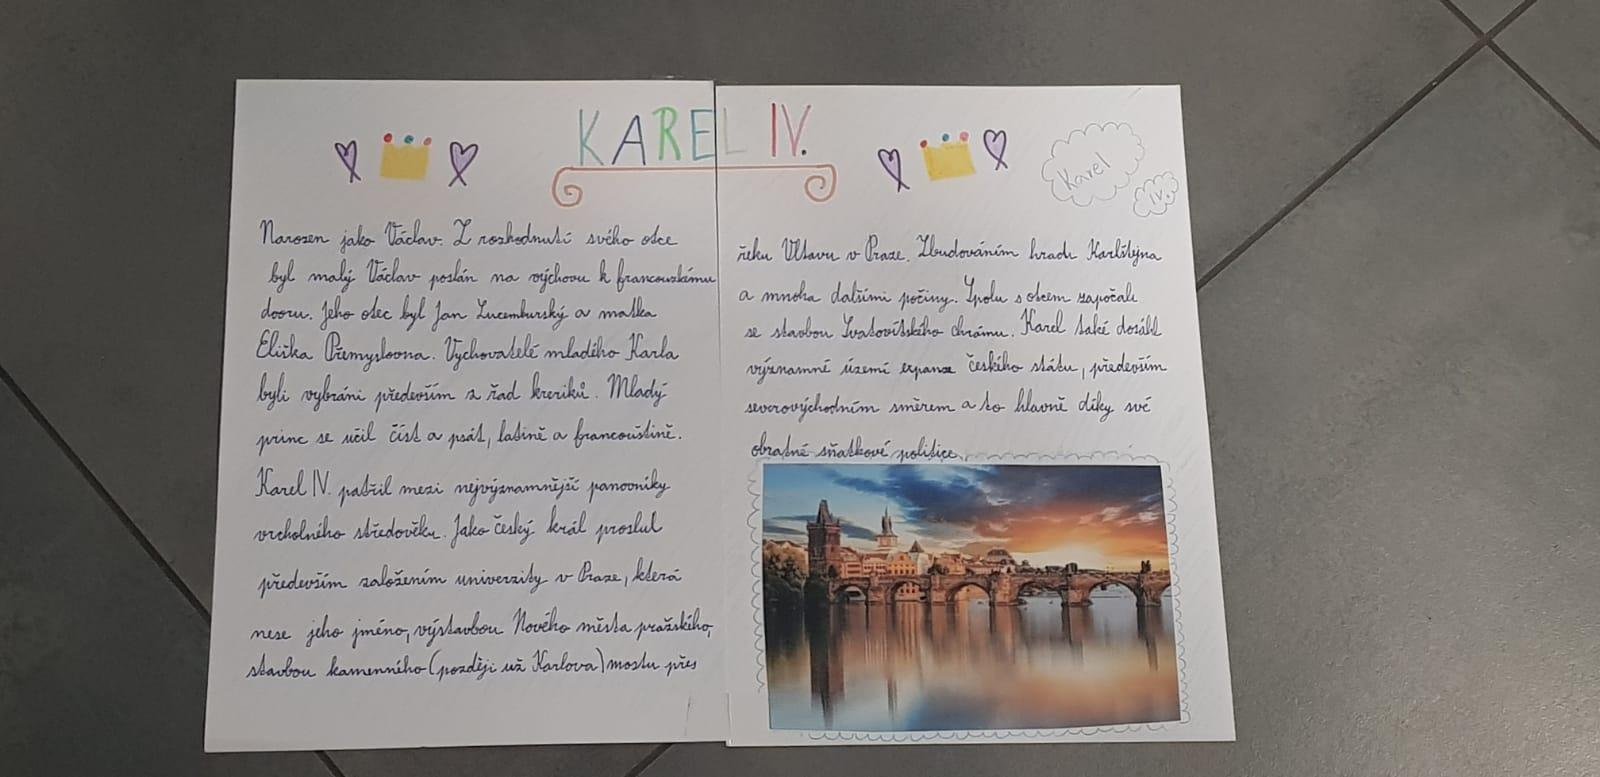 KAREL IV.
Karel
IV.
Narozen jako Václav. Z rozhodnutí svého otce
byl malý Václav poslán na výchovu k francouzskému
dvoru. Jeho otec byl Jan Lucemburský a matka
Eliška Přemyslovna. Vychovatelé mladého Karla
byli vybráni především z řad kreriků. Mladý
princ se učil číst a psát, latině a francouštině.
Karel IV. patřil mezi nejvýznamnější panovníky
vrcholného středověku. Jako český král proslul
především založením univerzity v Praze, která
nese jeho jméno, výstavbou Nového města pražského,
stavbou kamenného (později už Karlova) mostu přes
řeku Vltavu v Praze. Zbudováním hradu Karlštejna
a mnoha dalšími počiny. Spolu s otcem započali
se stavbou Svatovítského chrámu. Karel také dosáhl
významné území expanze českého státu, především
severovýchodním směrem a to hlavně díky své
obratné sňatkové politice.